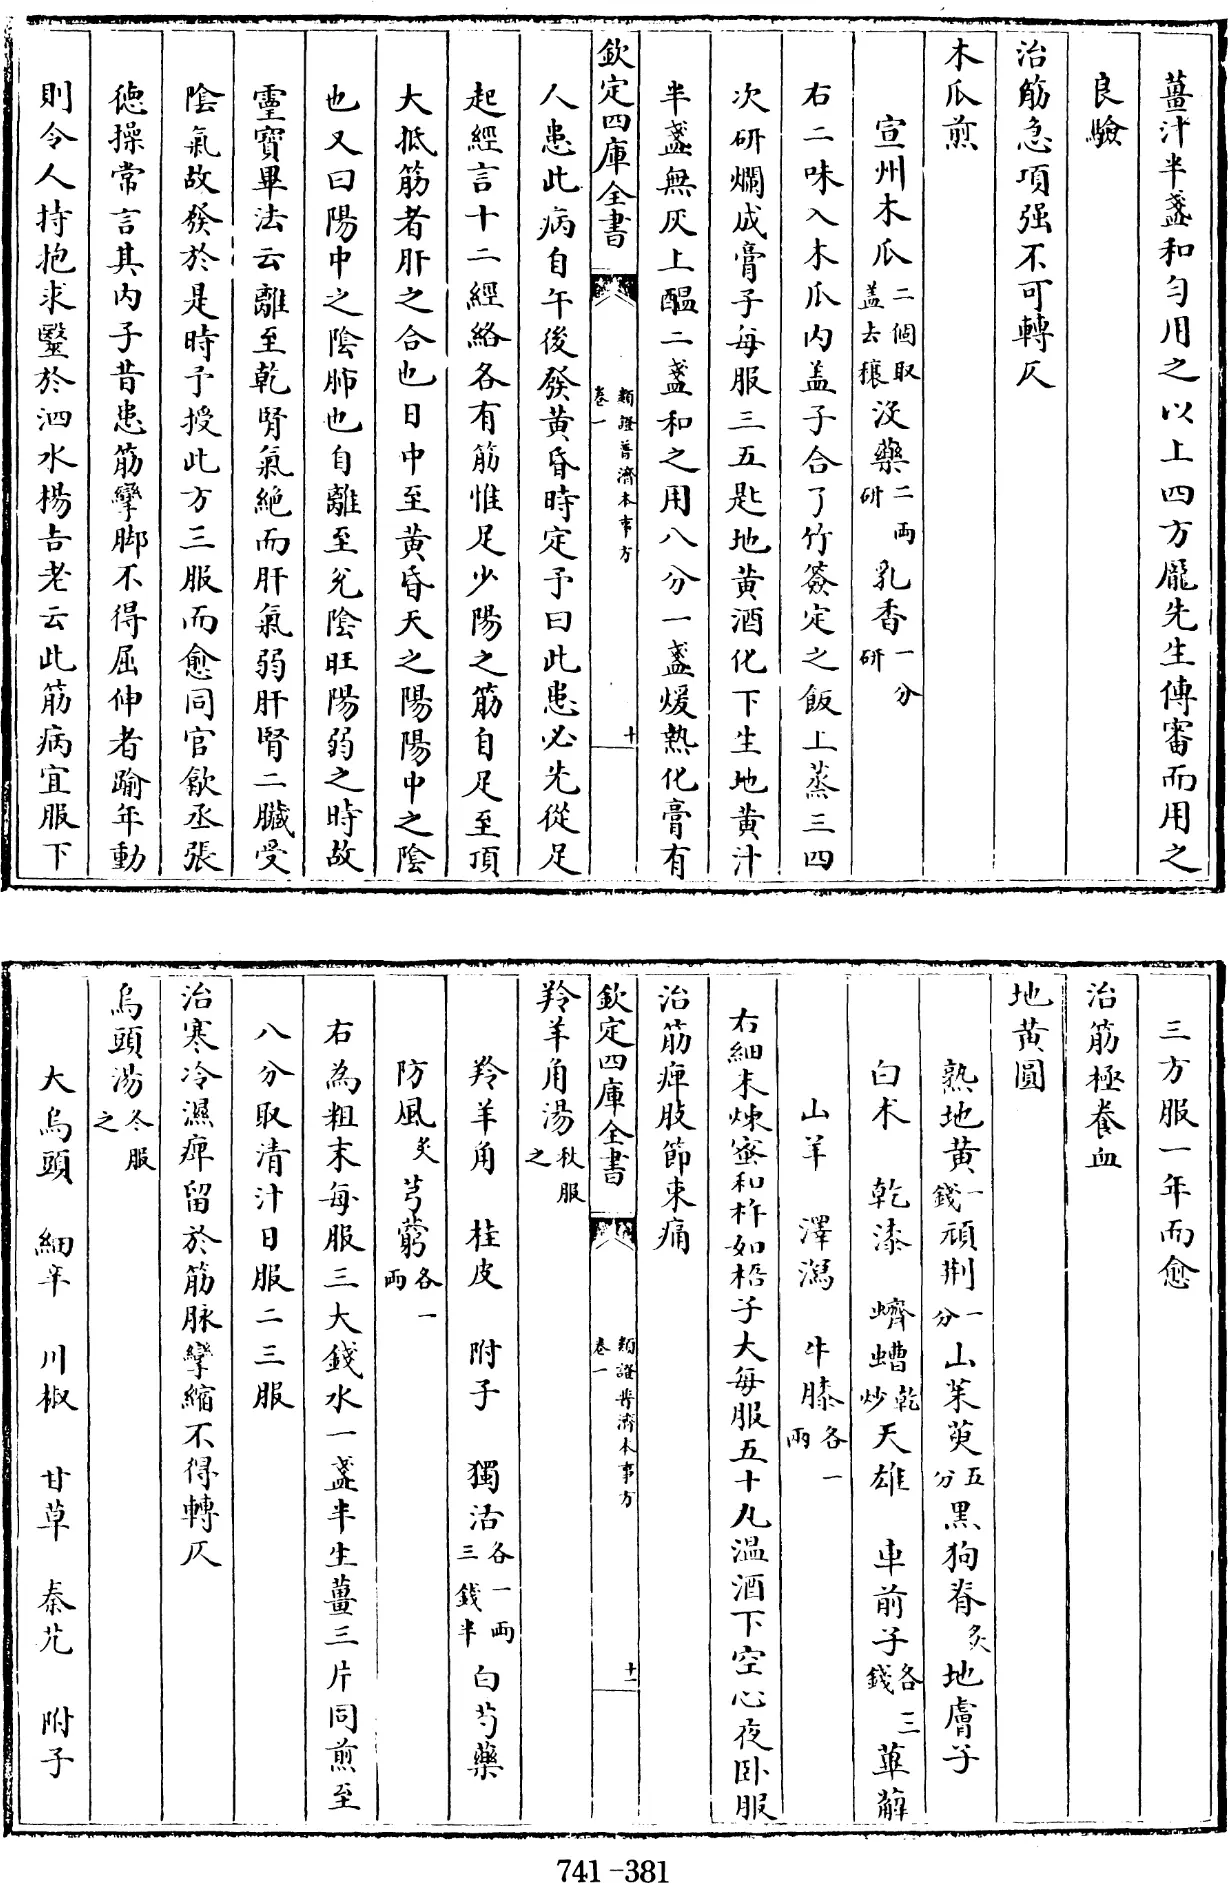 薑汁半盞和勻用之以上四方龎先生傳審而用之
良驗
治筋急項强不可轉仄
木瓜煎
宣州木瓜二個取盖去穰 沒藥二兩研 乳香一分研
右二味入木瓜内盖子合了竹簽定之飯上蒸三四
次研爛成膏子每服三五匙地黄酒化下生地黄汁
半盞無灰上醖二盞和之用八分一盞煖熟化膏有
欽定四庫全書 類證普濟本事方 卷一 十
人患此病自午後發黄昏時定予曰此患必先從足
起經言十二經絡各有筋惟足少陽之筋自足至頂
大抵筋者肝之合也日中至黄昏天之陽陽中之陰
也又曰陽中之陰肺也自離至兊陰旺陽弱之時故
靈寳畢法云離至乾腎氣絶而肝氣弱肝腎二臟受
陰氣故發於是時予授此方三服而愈同官歙丞張
徳操常言其内子昔患筋攣脚不得屈伸者踰年動
則令人持抱求醫於泗水楊吉老云此筋病宜服下
三方服一年而愈
治筋極養血
地黄圓
熟地黄一錢 頑荆一分 山茱萸五分 黒狗脊炙 地膚子
白术 乾漆 蠐螬乾炒 天雄 車前子各三錢 萆薢
山羊 澤瀉 牛膝各一兩
右細末煉蜜和杵如梧子大每服五十九温酒下空心夜卧服
治筋痺肢節束痛
欽定四庫全書 類證普濟本事方 卷一 十一
羚羊角湯秋服之
羚羊角 桂皮 附子 獨活各一兩三錢半 白芍藥
防風炙 芎藭各一兩
右為粗末每服三大錢水一盞半生薑三片同煎至
八分取清汁日服二三服
治寒冷濕痺留於筋脉攣縮不得轉仄
烏頭湯冬服之
大烏頭 細辛 川椒 甘草 秦艽 附子
741-381